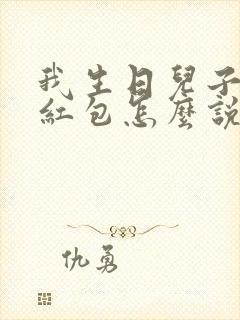 我生日兒子
紅包怎麼說
仇勇